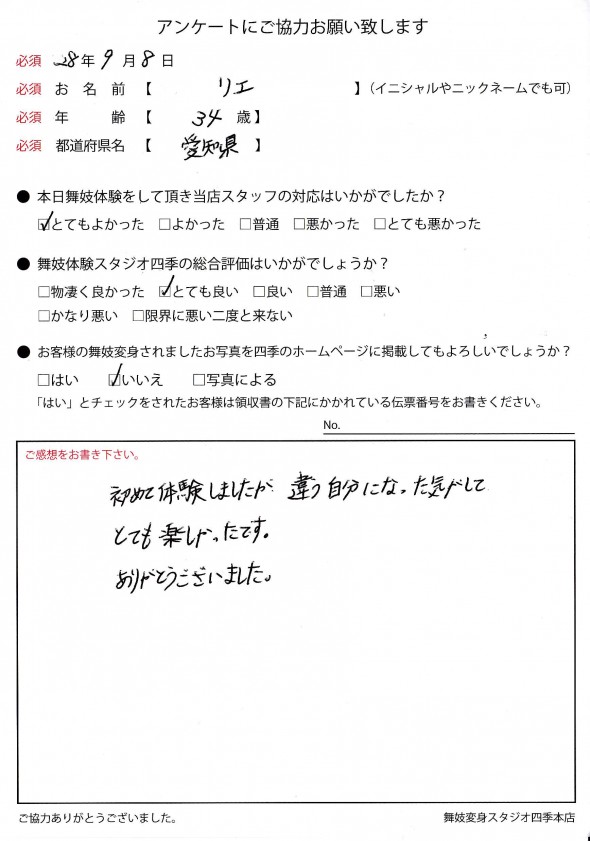 アンケートにご協力お願い致します
必須 28年 9月 8日
必須 お名前【 リエ 】(イニシャルやニックネームでも可)
必須 年齢【 34 歳】
必須 都道府県名【 愛知県 】
● 本日舞妓体験をして頂き当店スタッフの対応はいかがでしたか?
☑とてもよかった □よかった □普通 □悪かった □とても悪かった
● 舞妓体験スタジオ四季の総合評価はいかがでしょうか?
□物凄く良かった ☑とても良い □良い □普通 □悪い
□かなり悪い □限界に悪い二度と来ない
● お客様の舞妓変身されましたお写真を四季のホームページに掲載してもよろしいでしょうか?
□はい ☑いいえ □写真による
「はい」とチェックをされたお客様は領収書の下記にかかれている伝票番号をお書きください。
No.
ご感想をお書き下さい。
初めて体験しましたが 違う自分になった気がして
とても楽しかったです。
ありがとうございました。
ご協力ありがとうございました。 舞妓変身スタジオ四季本店